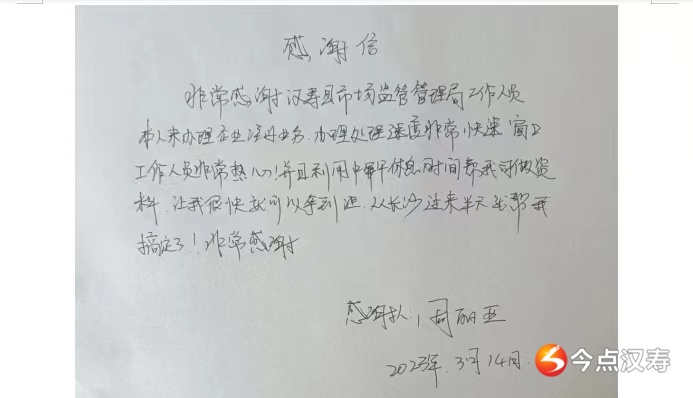 感谢信
非常感谢汉寿县市场监管管理局工作人员
本人来办理企业注册业务,办理处理速度非常快速 窗口
工作人员非常热心!并且利用中午休息时间帮我司做资
料.让我很快就可以拿到证.从长沙过来半天就帮我
搞定了!非常感谢
感谢人:周丽亚
2023年.3月14日.
今点汉寿